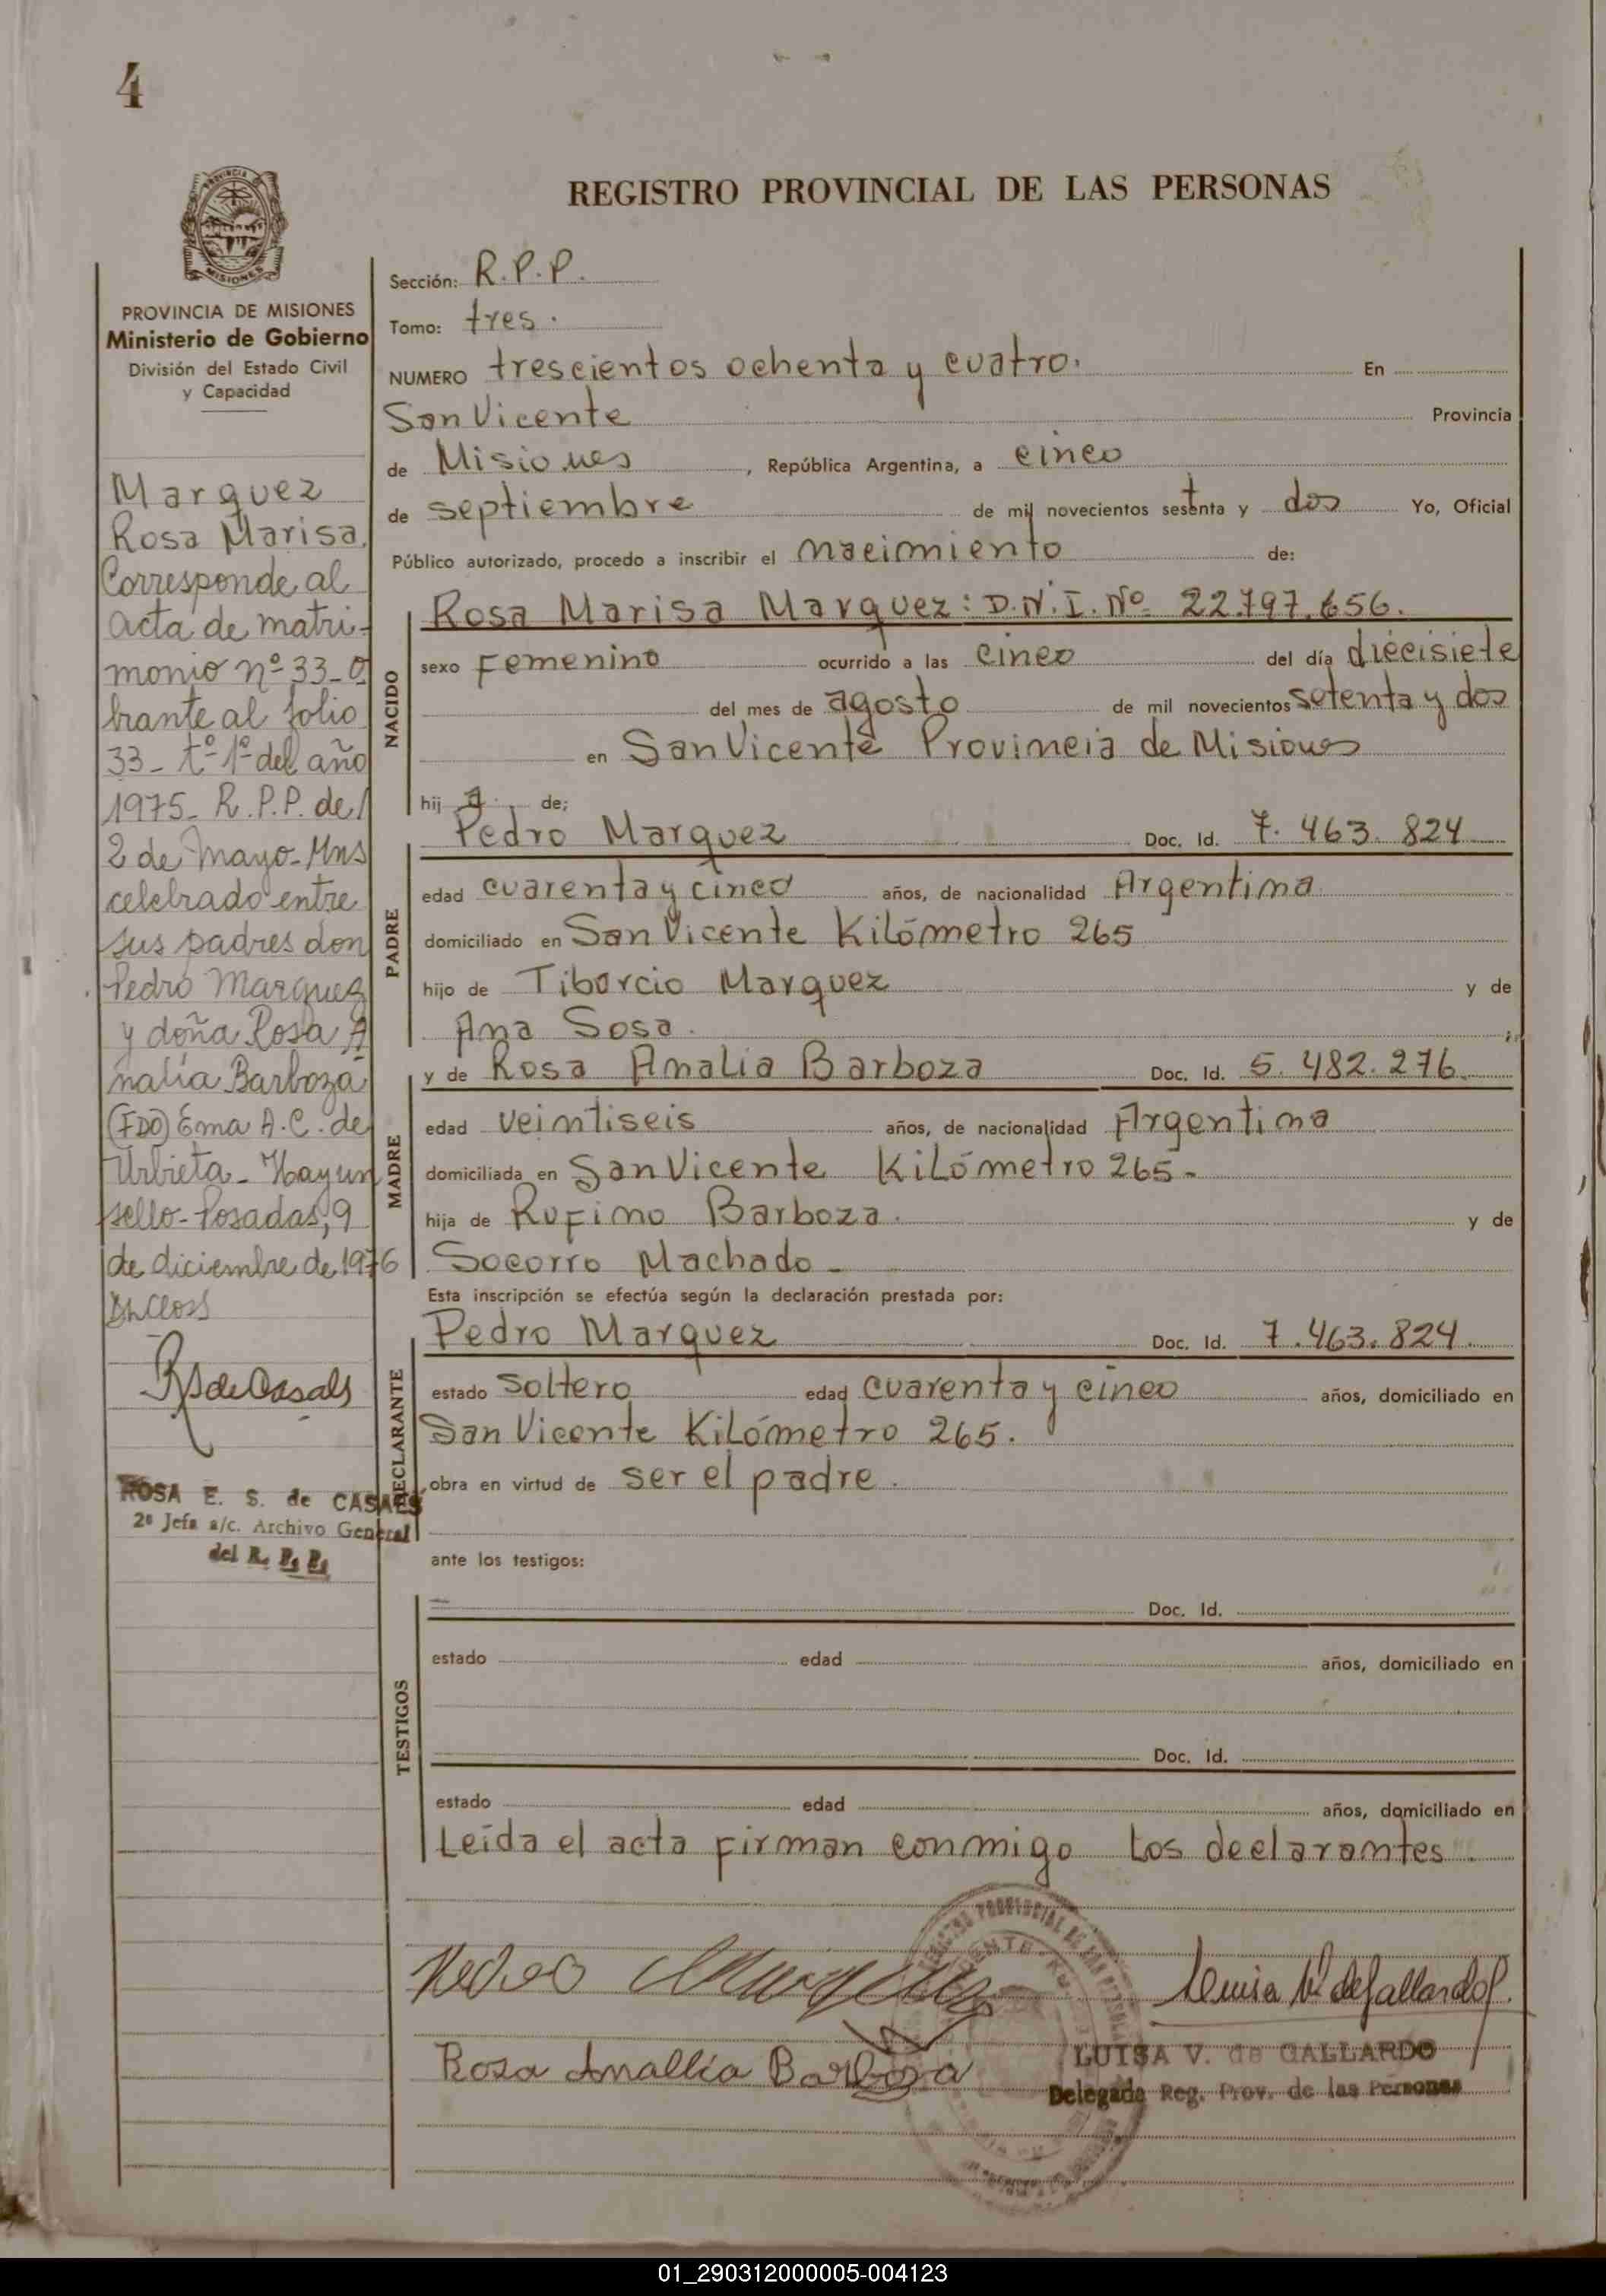 4
PROVINCIA
MISIONES
REGISTRO PROVINCIAL DE LAS PERSONAS
PROVINCIA DE MISIONES
Ministerio de Gobierno
División del Estado Civil
y Capacidad
Marquez
Rosa Marisa.
Corresponde al
acta de matri-
monio nº 33-O
brante al folio
33- tº 1º del año
1975- R.P.P. de
2 de Mayo- Mns
celebrado entre
sus padres don
Pedro Marquez
y doña Rosa A
nalia Barboza
(FDO) Ema A.C. de
Urbieta- Hay un
sello- Posadas, 9
de diciembre de 1976
ROSA E. S. de CASALS
2ª Jefa a/c. Archivo General
del R. P. P.
Sección: R.P.P.
Tomo: tres.
NUMERO trescientos ochenta y cuatro. En
San Vicente Provincia
de Misiones, República Argentina, a cinco
de septiembre de mil novecientos setenta y dos Yo, Oficial
Público autorizado, procedo a inscribir el nacimiento de:
NACIDO
Rosa Marisa Marquez: D.N.I. Nº 22.797.656.
sexo Femenino ocurrido a las cinco del día diecisiete
del mes de agosto de mil novecientos setenta y dos
en San Vicente Provincia de Misiones
hij a de;
PADRE
Pedro Marquez Doc. Id. 7.463.824
edad cuarenta y cinco años, de nacionalidad Argentina
domiciliado en San Vicente Kilómetro 265
hijo de Tiburcio Marquez y de
Ana Sosa. ;
MADRE
y de Rosa Analia Barboza Doc. Id. 5.482.276.
edad veintiseis años, de nacionalidad Argentina
domiciliada en San Vicente Kilómetro 265-
hija de Rufino Barboza. y de
Socorro Machado-
Esta inscripción se efectúa según la declaración prestada por:
DECLARANTE
Pedro Marquez Doc. Id. 7.463.824.
estado Soltero edad cuarenta y cinco años, domiciliado en
San Vicente Kilómetro 265.
obra en virtud de ser el padre.
ante los testigos:
TESTIGOS
Doc. Id.
estado edad años, domiciliado en
Doc. Id.
estado edad años, domiciliado en
Leída el acta firman conmigo los declarantes.
Pedro Marquez
Luisa V. de Gallardo
Rosa Anallia Barboza
LUISA V. de GALLARDO
Delegada Reg. Prov. de las Personas
01_290312000005-004123